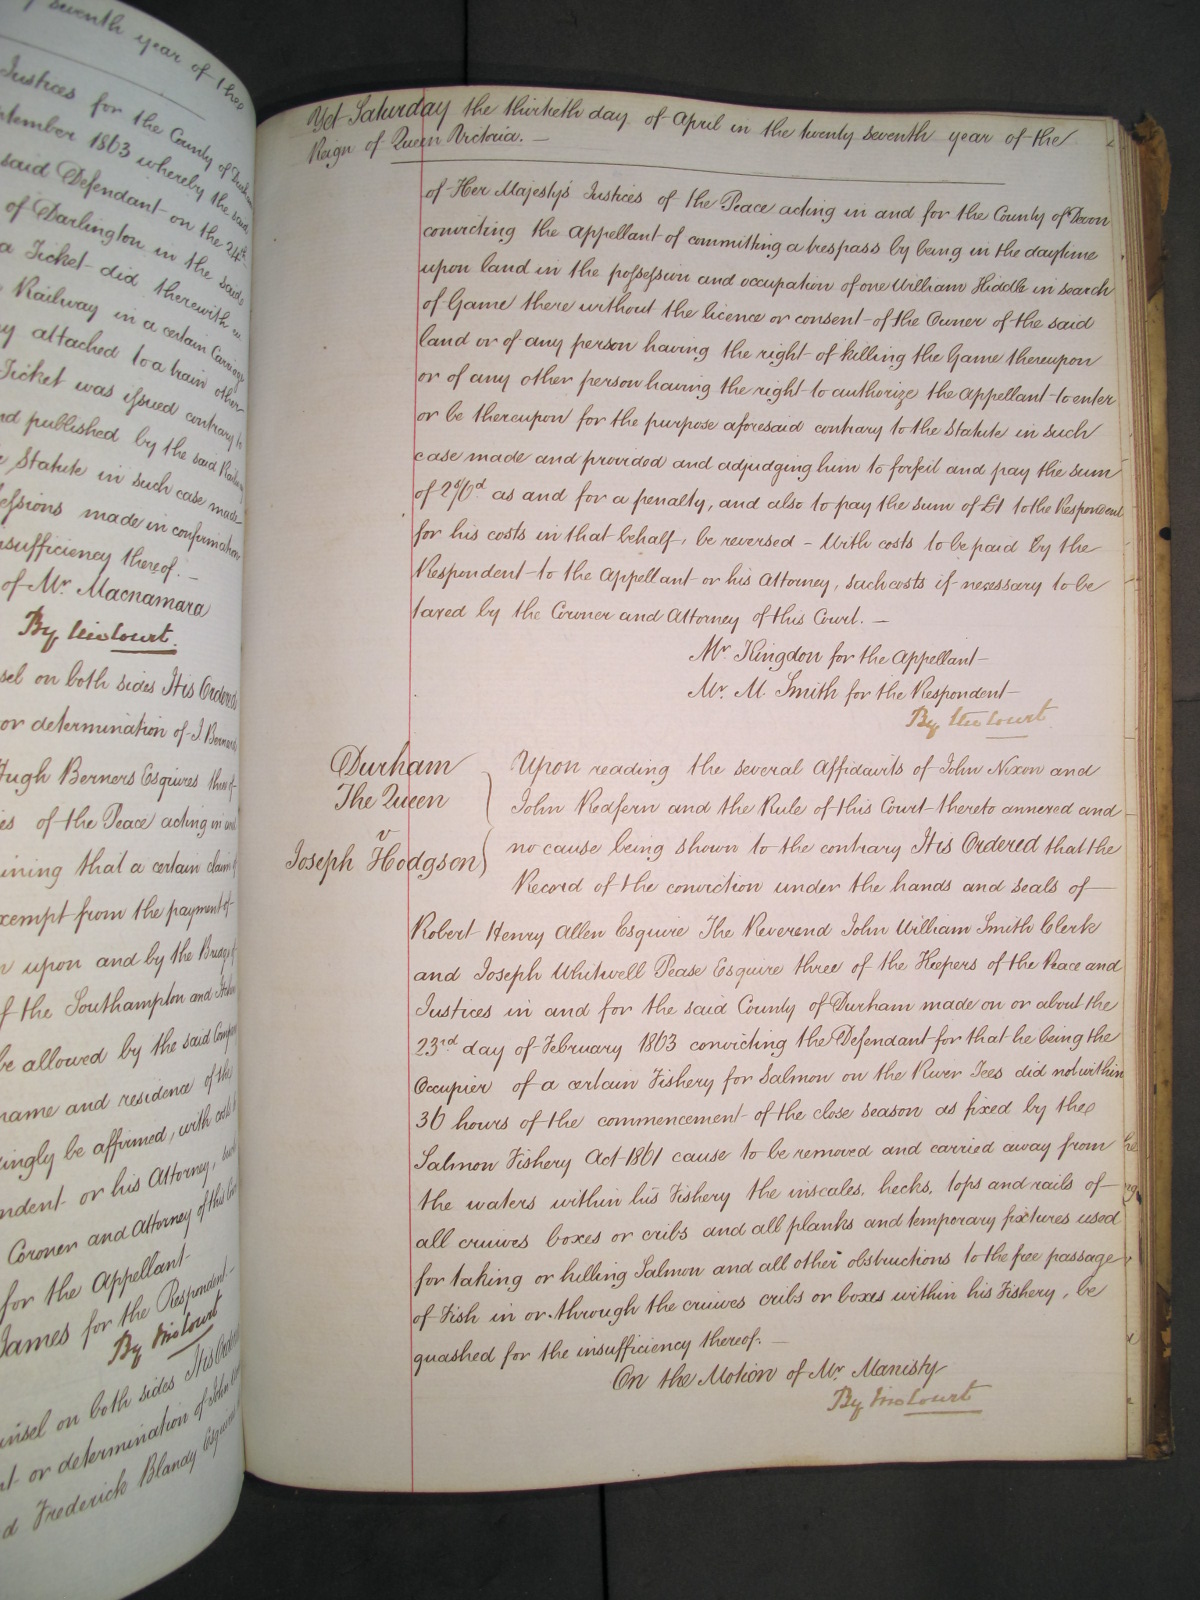 seventh year of the
Justices for the County of Durham
September 1863 whereby the said
said Defendant on the 24th
of Darlington in the said
a Ticket did therewith
Railway in a certain Carriage
attached to a train other
Ticket was issued contrary to
and published by the said Railway
Statute in such case made
Sessions made in confirmation
insufficiency thereof. —
of Mr. Macnamara
By the Court.
on both sides It is Ordered
or determination of J. Berners
Hugh Berners Esquires
of the Peace acting in and
that a certain claim
exempt from the payment of
upon and by the
of the Southampton and
be allowed by the said
name and residence of the
be affirmed, with costs
or his Attorney, such
Coroner and Attorney of this
for the Appellant
James for the Respondent. —
By the Court
on both sides It is Ordered
or determination of John
Frederick Blandy Esquires
Yet Saturday the thirtieth day of April in the twenty seventh year of the
Reign of Queen Victoria. —
of Her Majesty's Justices of the Peace acting in and for the County of Devon
convicting the Appellant of committing a trespass by being in the daytime
upon land in the possession and occupation of one William Hiddle in search
of Game there without the licence or consent of the Owner of the said
land or of any person having the right of killing the Game thereupon
or of any other person having the right to authorize the Appellant to enter
or be thereupon for the purpose aforesaid contrary to the Statute in such
case made and provided and adjudging him to forfeit and pay the sum
of 2s/6d as and for a penalty, and also to pay the sum of £1 to the Respondent
for his costs in that behalf, be reversed – With costs to be paid by the
Respondent to the Appellant or his Attorney, such costs if necessary to be
taxed by the Coroner and Attorney of this Court. —
Mr. Kingdon for the Appellant —
Mr. M. Smith for the Respondent —
By the Court
Durham
The Queen
v
Joseph Hodgson
Upon reading the several Affidavits of John Nixon and
John Redfern and the Rule of this Court thereto annexed and
no cause being shown to the contrary It is Ordered that the
Record of the conviction under the hands and seals of
Robert Henry Allen Esquire The Reverend John William Smith Clerk
and Joseph Whitwell Pease Esquire three of the Keepers of the Peace and
Justices in and for the said County of Durham made on or about the
23rd day of February 1863 convicting the Defendant for that he being the
Occupier of a certain Fishery for Salmon on the River Tees did not within
36 hours of the commencement of the close season as fixed by the
Salmon Fishery Act 1861 cause to be removed and carried away from
the waters within his Fishery the inscales, hecks, tops and rails of
all cruives boxes or cribs and all planks and temporary fixtures used
for taking or killing Salmon and all other obstructions to the free passage
of Fish in or through the cruives cribs or boxes within his Fishery, be
quashed for the insufficiency thereof. —
On the Motion of Mr. Manisty
By the Court